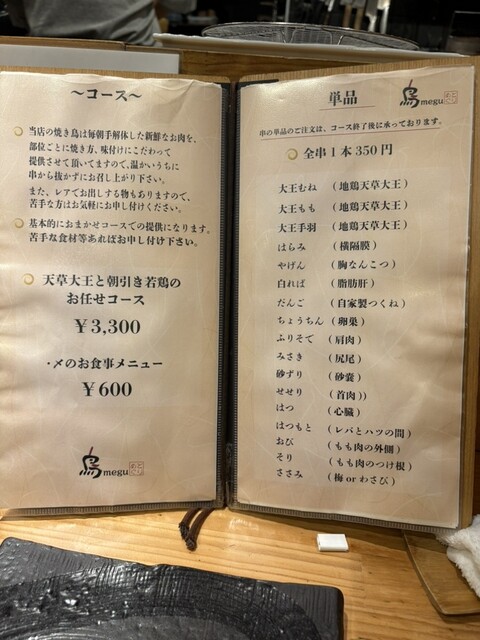 〜コース〜
当店の焼き鳥は毎朝手解体した新鮮なお肉を、
部位ごとに焼き方、味付けにこだわって
提供させて頂いてますので、温かいうちに
串から抜かずにお召し上がり下さい。
また、レアでお出しする物もありますので、
苦手な方はお気軽にお申し付けください。
基本的におまかせコースでの提供になります。
苦手な食材等あればお申し付け下さい。
天草大王と朝引き若鶏の
お任せコース
￥3,300
・〆のお食事メニュー
￥600
鳥megu
単品
鳥megu
串の単品のご注文は、コース終了後に承っております。
全串1本350円
大王むね （地鶏天草大王）
大王もも （地鶏天草大王）
大王手羽 （地鶏天草大王）
はらみ （横隔膜）
やげん （胸なんこつ）
白れば （脂肪肝）
だんご （自家製つくね）
ちょうちん （卵巣）
ふりそで （肩肉）
みさき （尻尾）
砂ずり （砂嚢）
せせり （首肉））
はつ （心臓）
はつもと （レバとハツの間）
おび （もも肉の外側）
そり （もも肉のつけ根）
ささみ （梅 or わさび）